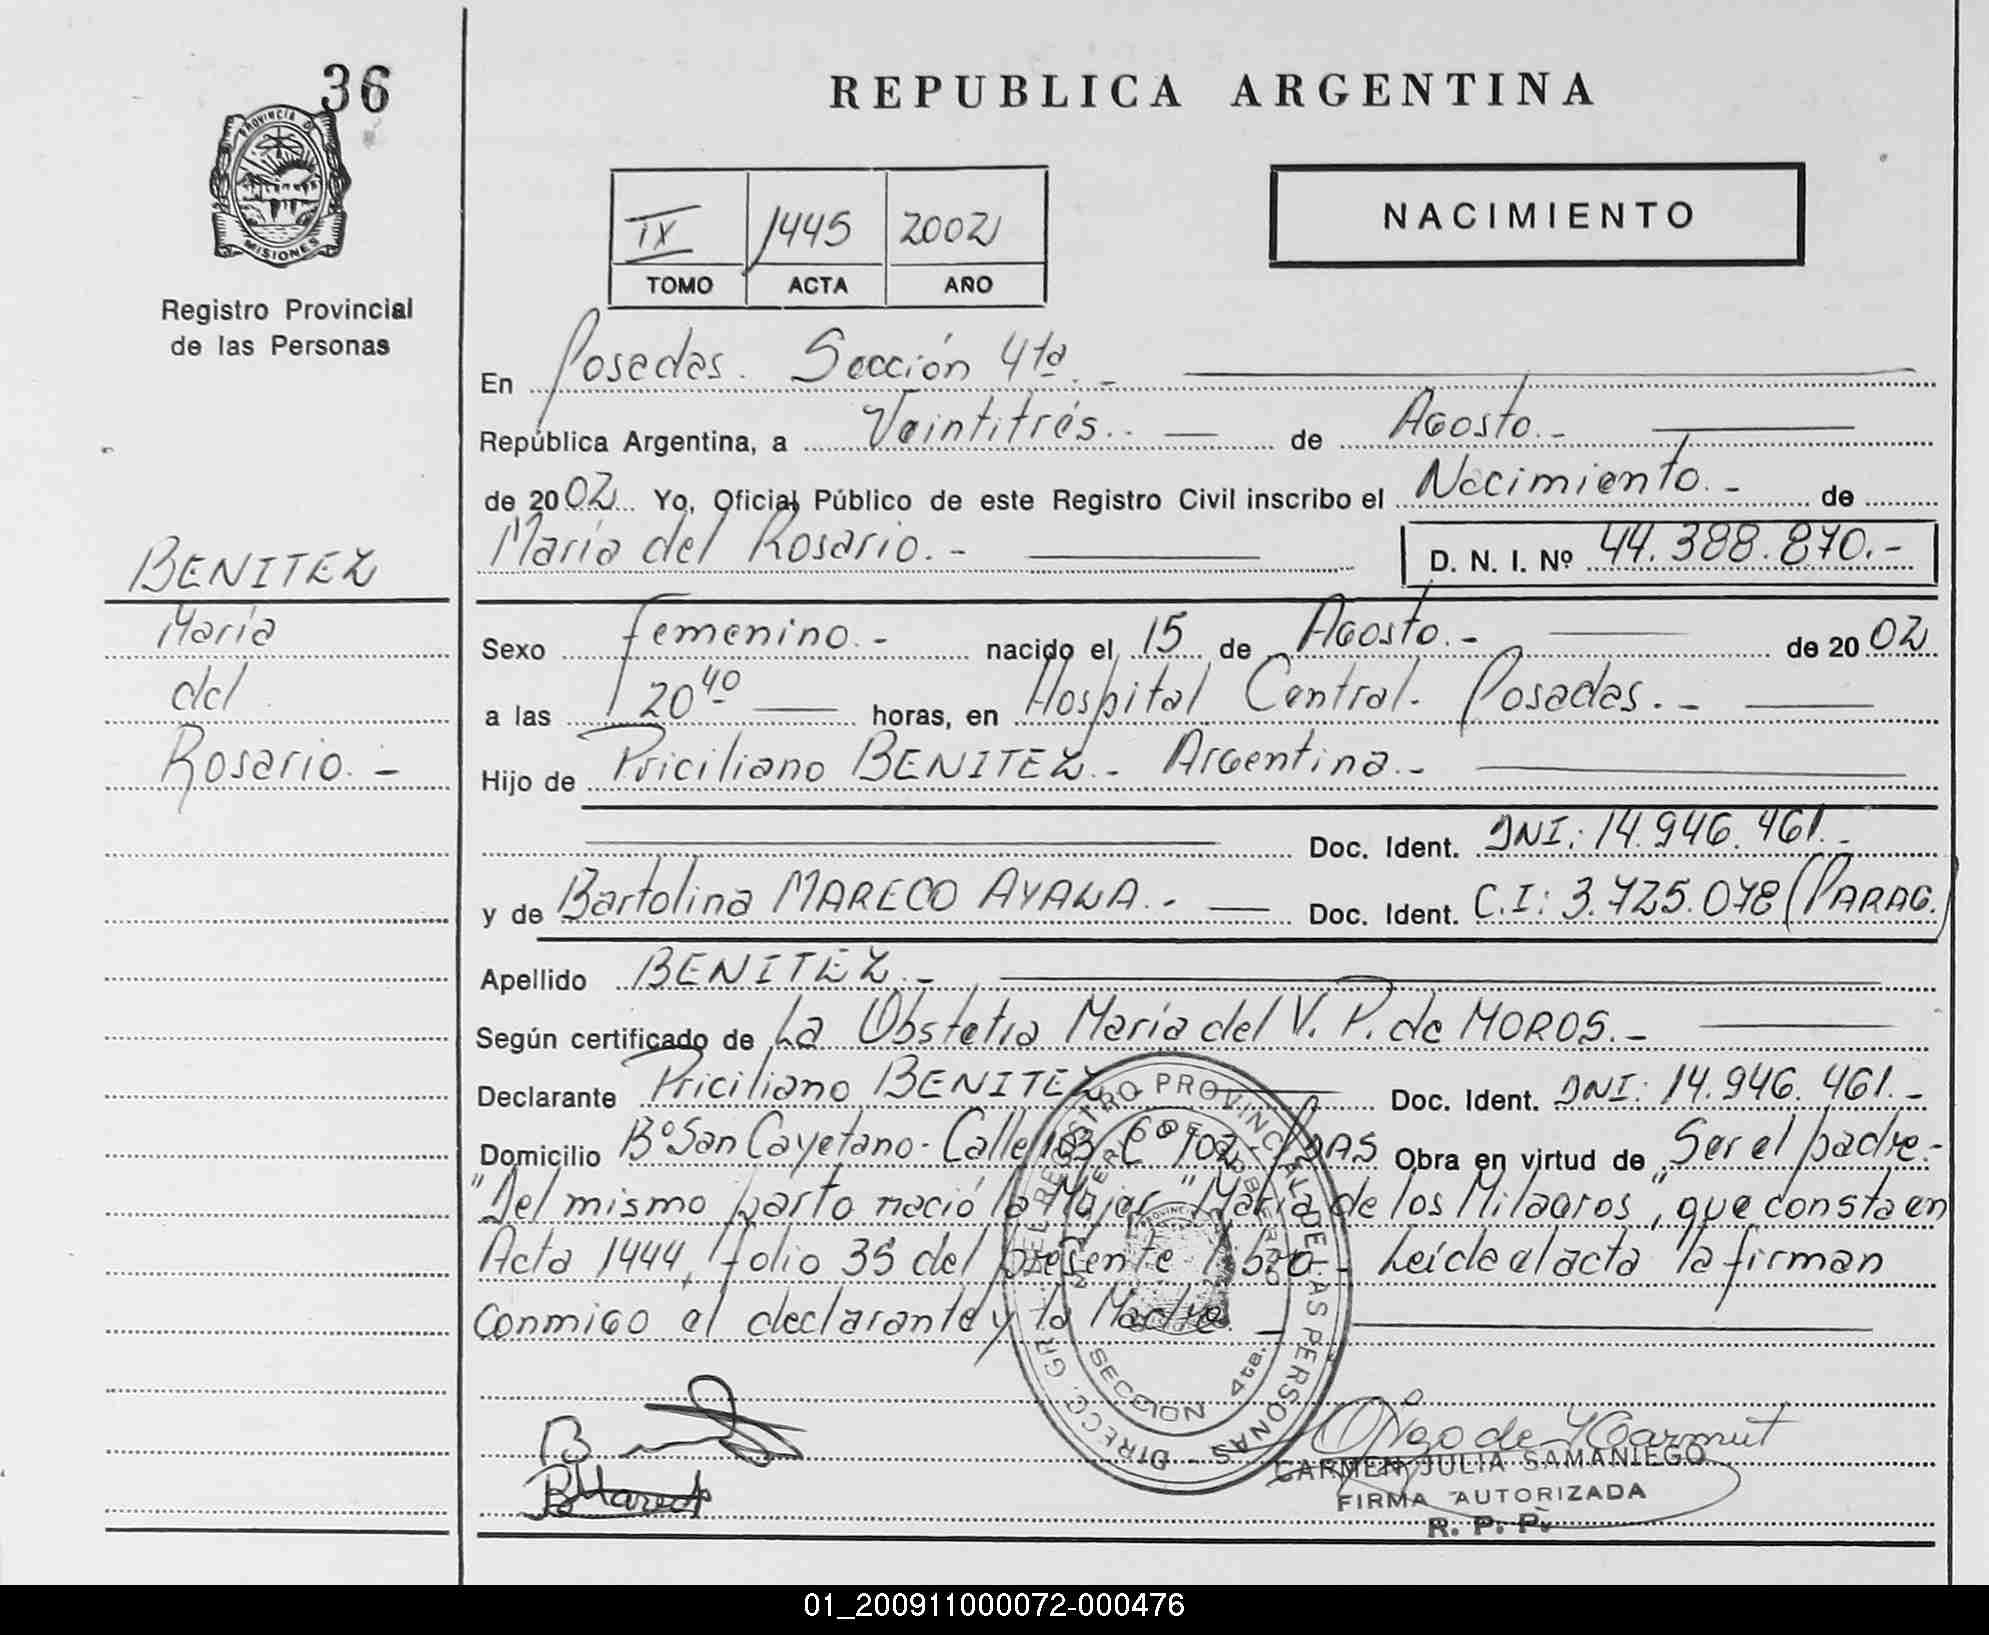 36
PROVINCIA DE
MISIONES
Registro Provincial
de las Personas
REPUBLICA ARGENTINA
IX 1445 2002
TOMO ACTA AÑO
NACIMIENTO
En Posadas. Sección 4ta.-
República Argentina, a Veintitrés.- de Agosto.-
de 2002 Yo, Oficial Público de este Registro Civil inscribo el Nacimiento.- de
María del Rosario.- D. N. I. Nº 44.388.870.-
BENITEZ
María
del
Rosario.-
Sexo femenino.- nacido el 15 de Agosto.- de 2002
a las 20 40 horas, en Hospital Central. Posadas.-
Hijo de Priciliano BENITEZ.- Argentina.-
Doc. Ident. DNI: 14.946.461.-
y de Bartolina MARECO AYALA.- Doc. Ident. C.I: 3.725.078 (PARAG.)
Apellido BENITEZ.-
Según certificado de La Obstetra María del V. P. de MOROS.-
Declarante Priciliano BENITEZ Doc. Ident. DNI: 14.946.461.-
Domicilio Bº San Cayetano- Calle 103 Cº 102 Pdas Obra en virtud de Ser el padre.-
"Del mismo parto nació la Mujer "María de los Milagros", que consta en
Acta 1444, folio 35 del presente libro- Leída el acta la firman
conmigo el declarante y la Madre.-
DIRECC. GRAL. DEL REGISTRO PROVINCIAL DE LAS PERSONAS
SECCION 4ta.
B Mareco
CARMEN JULIA SAMANIEGO
FIRMA AUTORIZADA
R. P. P.
01_200911000072-000476